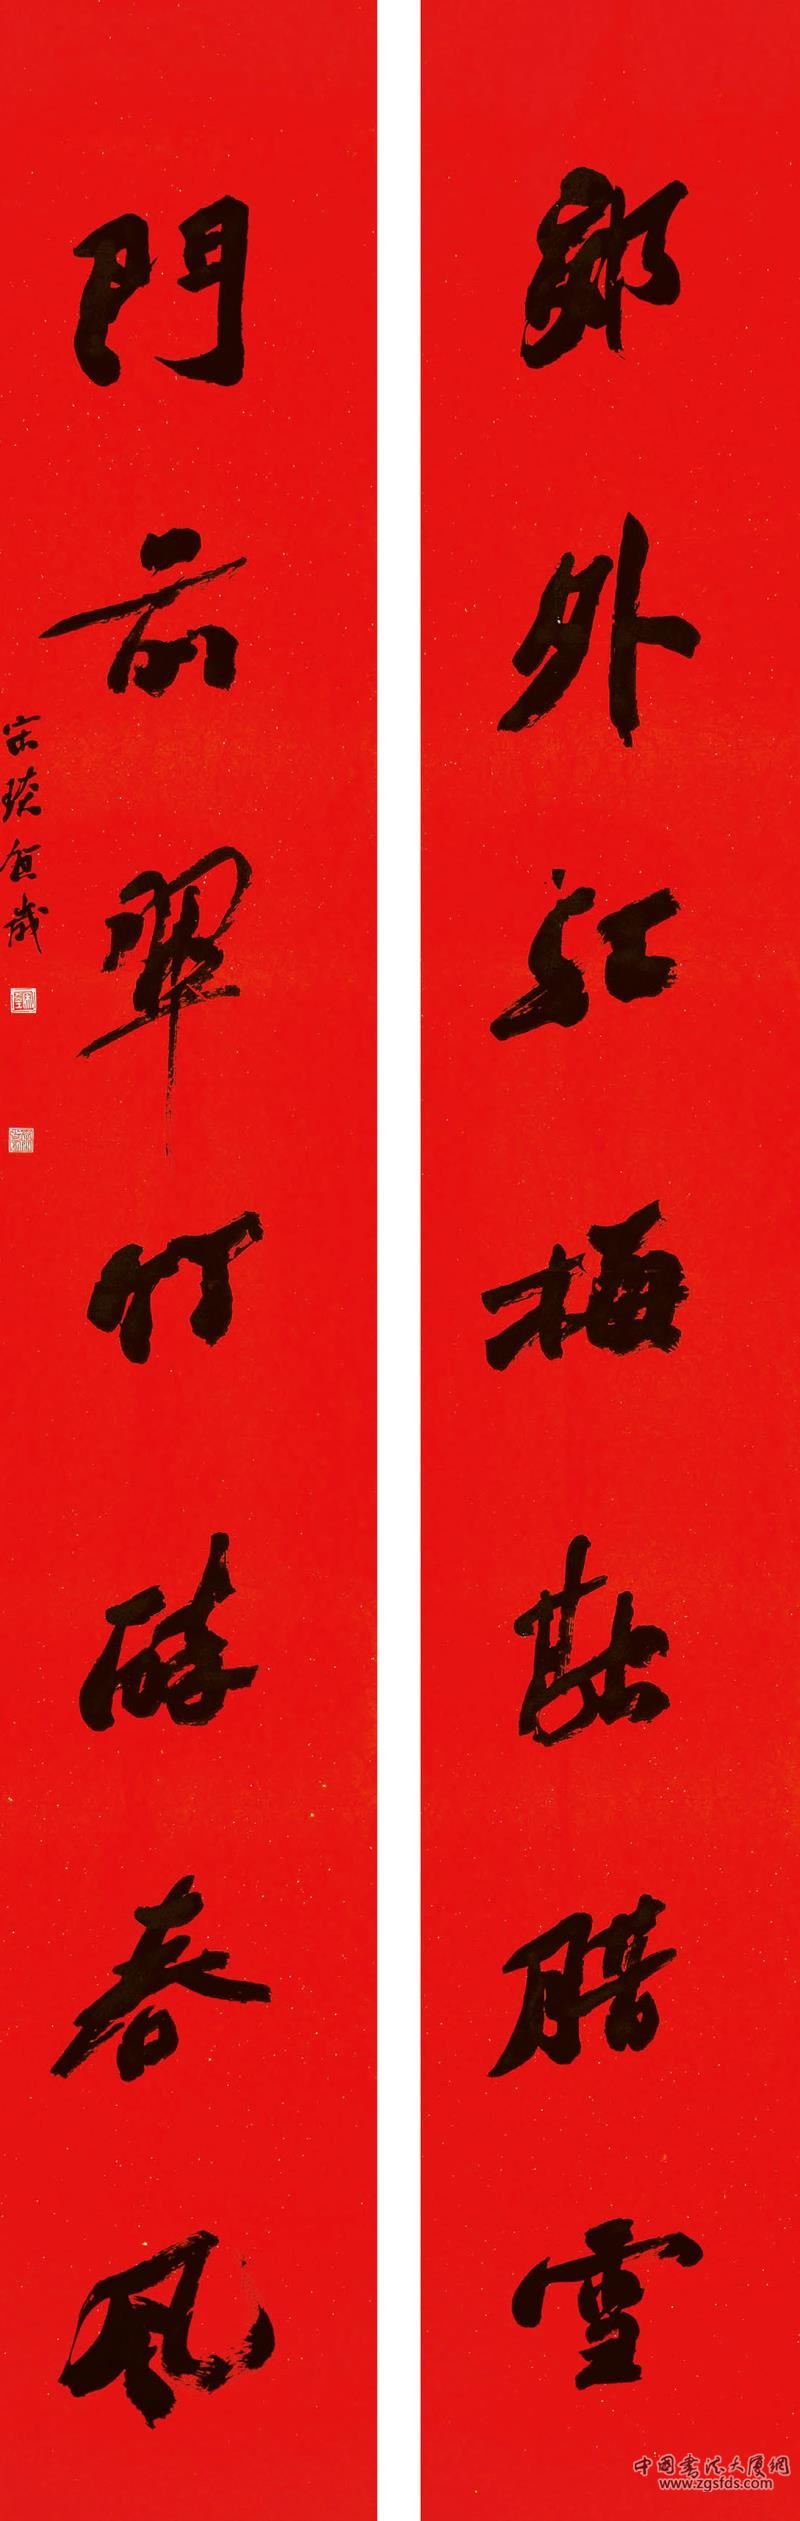 郊外红梅融腊雪
門前翠竹醉春風
宋琰賀歲
中國書法大厦網
www.zgsfds.com